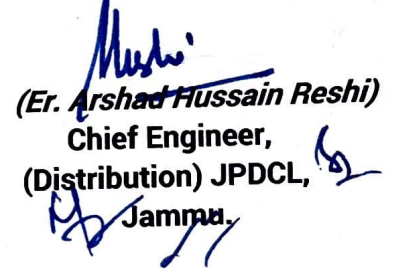 (Er. Arshad Hussain Reshi)
Chief Engineer,
(Distribution) JPDCL,
Jammu.